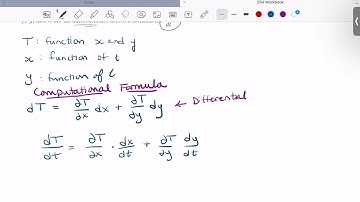 254 Workbook
T: function x and y
x: function of t
y: function of t
Computational Formula
dT = ∂T/∂x dx + ∂T/∂y dy ← Differential
dT/dt = ∂T/∂x · dx/dt + ∂T/∂y dy/dt